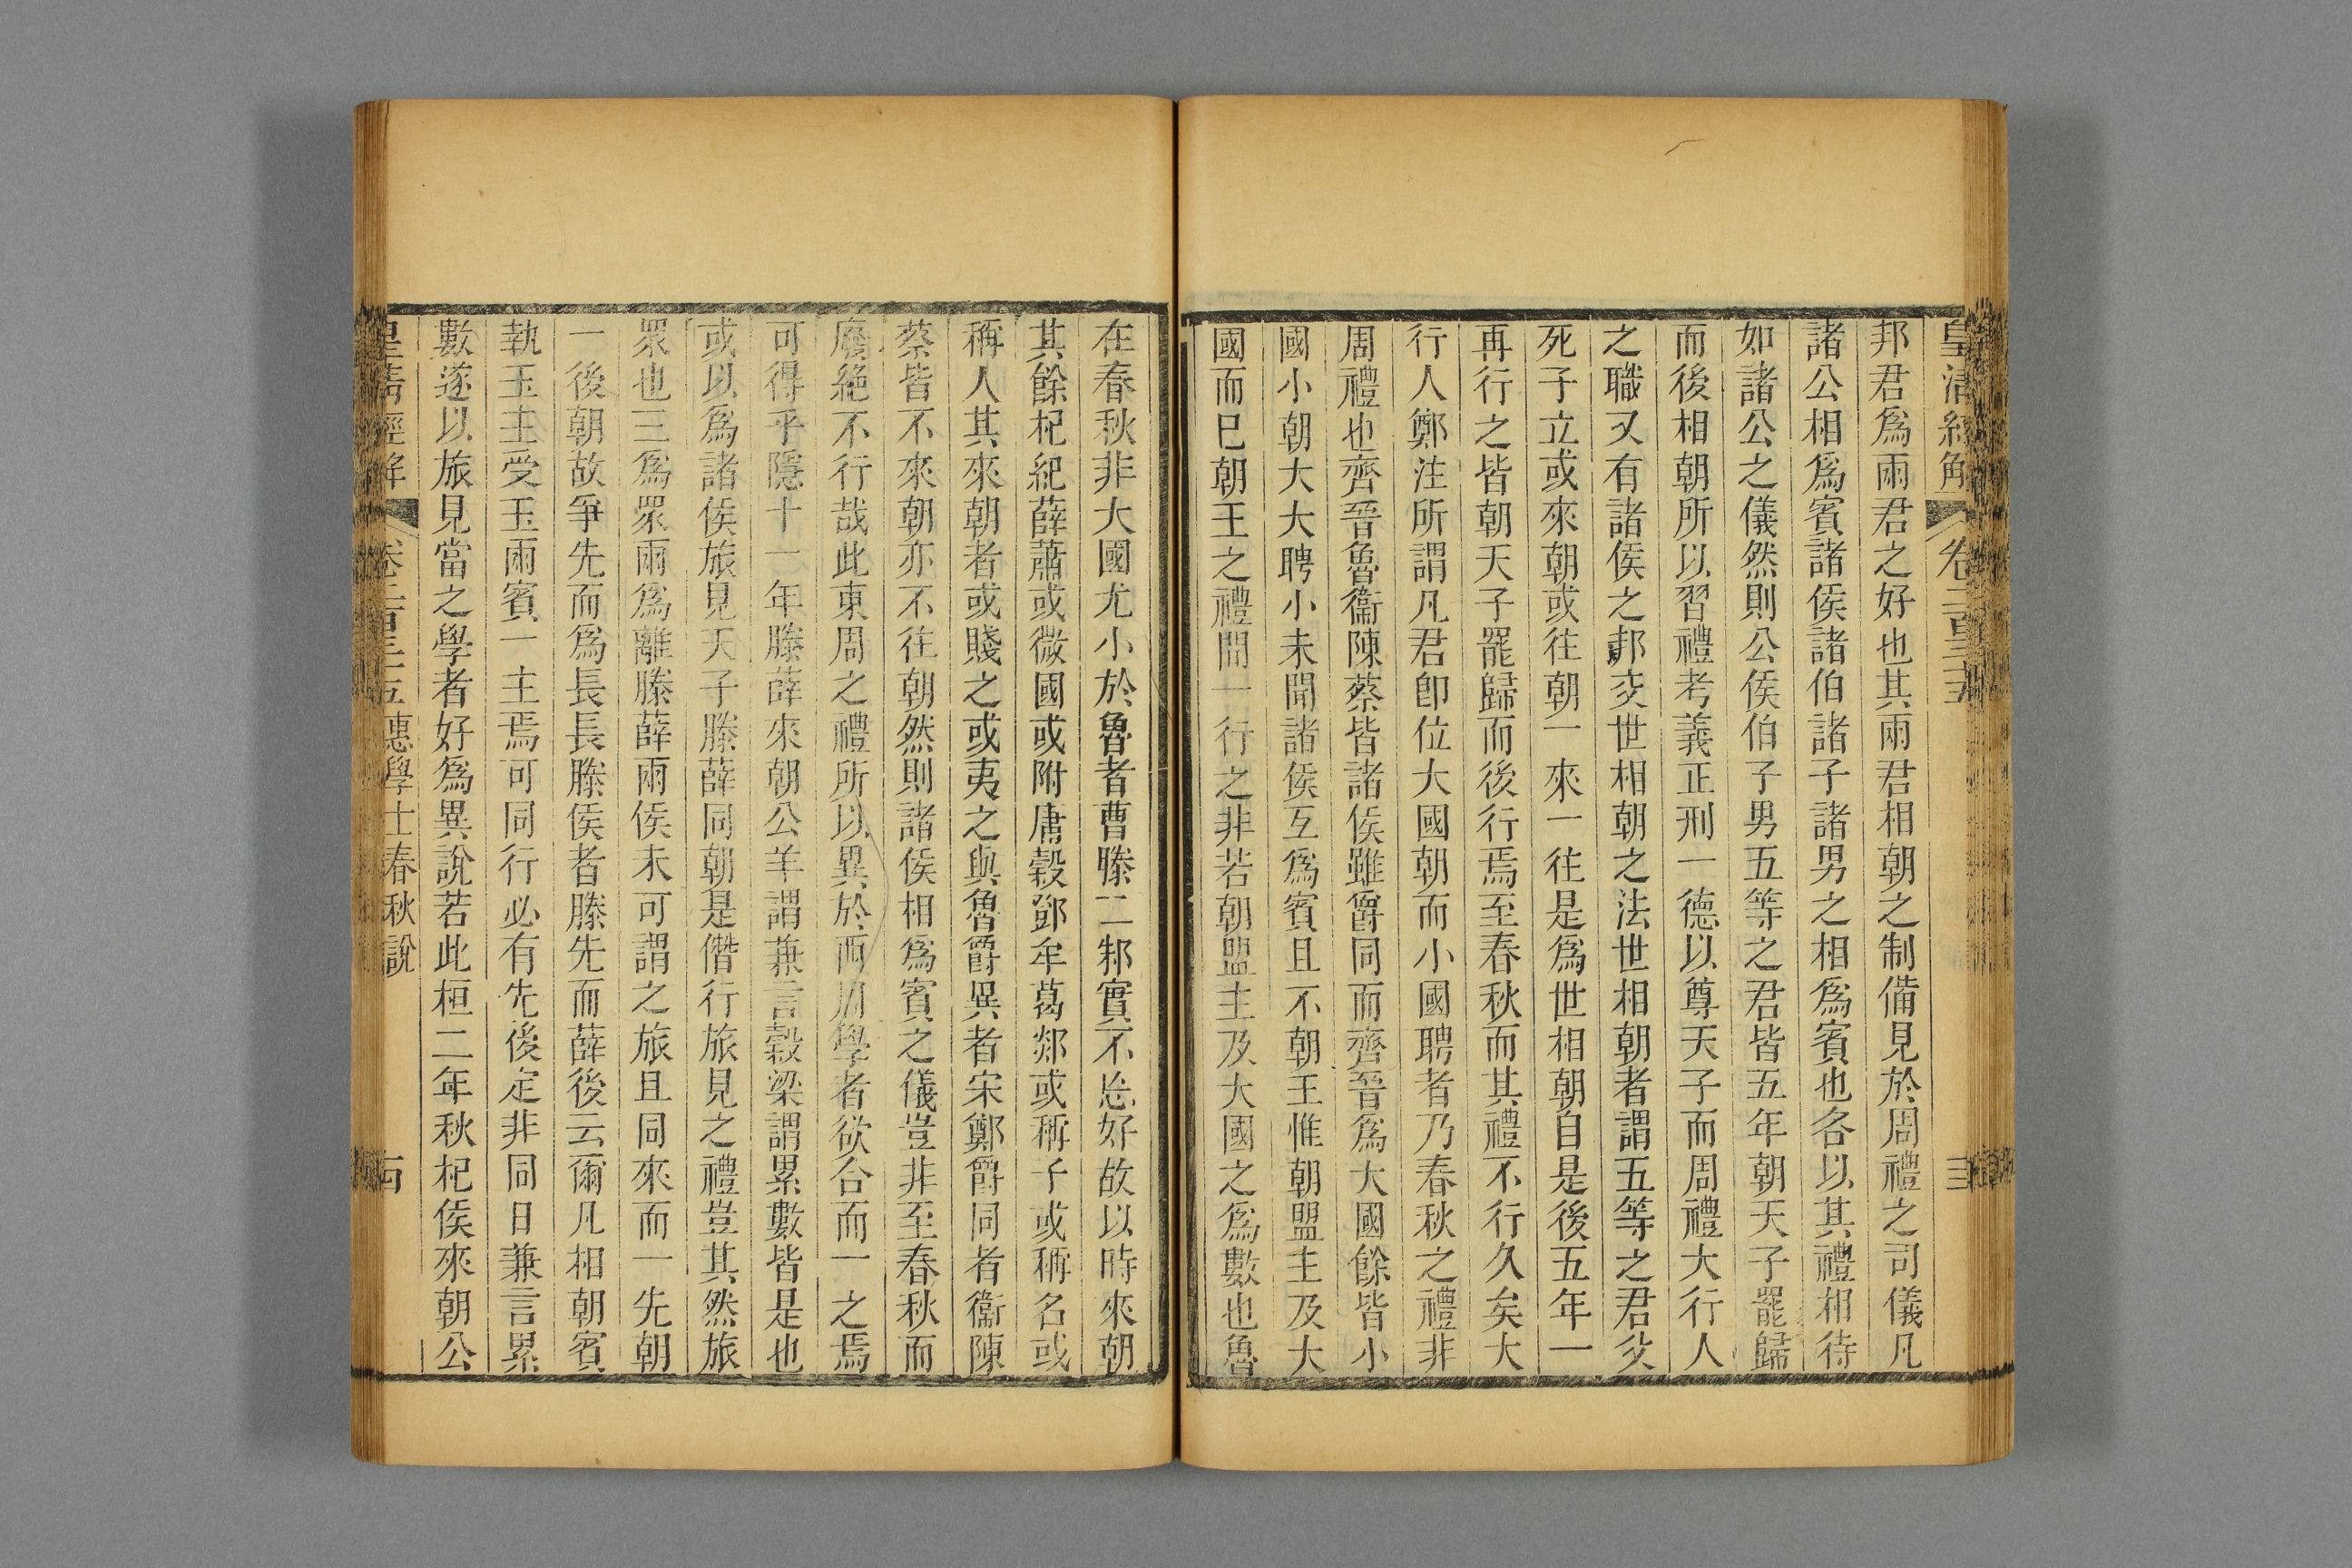 皇清經解 卷二百三十五
邦君爲兩君之好也其兩君相朝之制備見於周禮之司儀凡
諸公相爲賓諸侯諸伯諸子諸男之相爲賓也各以其禮相待
如諸公之儀然則公侯伯子男五等之君皆五年朝天子罷歸
而後相朝所以習禮考義正刑一德以尊天子而周禮大行人
之職又有諸侯之邦交世相朝之法世相朝者謂五等之君父
死子立或來朝或往朝一來一往是爲世相朝自是後五年一
再行之皆朝天子罷歸而後行焉至春秋而其禮不行久矣大
行人鄭注所謂凡君卽位大國朝而小國聘者乃春秋之禮非
周禮也齊晉魯衞陳蔡皆諸侯雖爵同而齊晉爲大國餘皆小
國小朝大大聘小未聞諸侯互爲賓且不朝王惟朝盟主及大
國而已朝王之禮間一行之非若朝盟主及大國之爲數也魯
在春秋非大國尤小於魯者曹滕二邾實不忘好故以時來朝
其餘杞紀薛蕭或微國或附庸穀鄧牟葛郯或稱子或稱名或
稱人其來朝者或賤之或夷之與魯爵異者宋鄭爵同者衞陳
蔡皆不來朝亦不往朝然則諸侯相爲賓之儀豈非至春秋而
廢絶不行哉此東周之禮所以異於西周學者欲合而一之焉
可得乎隱十一年滕薛來朝公羊謂兼言穀梁謂累數皆是也
或以爲諸侯旅見天子滕薛同朝是僭行旅見之禮豈其然旅
眾也三爲眾兩爲離滕薛兩侯未可謂之旅且同來而一先朝
一後朝故爭先而爲長長滕侯者滕先而薛後云爾凡相朝賓
執玉主受玉兩賓一主焉可同行必有先後定非同日兼言累
數遂以旅見當之學者好爲異說若此桓二年秋杞侯來朝公
皇清經解 卷二百三十五 惠學士春秋說